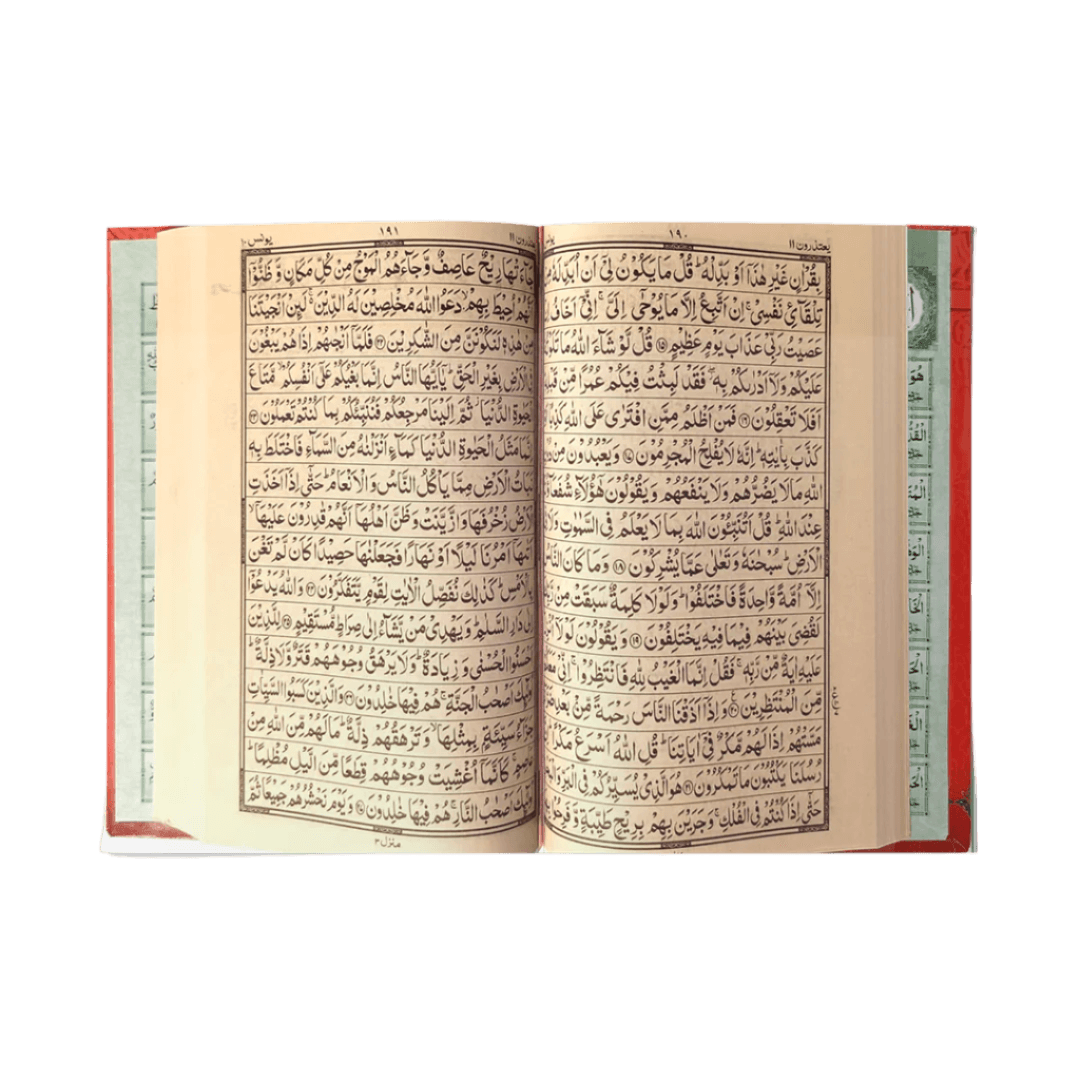 يعتذرون ١١
١٩٠
يونس
بِقُرْاٰنٍ غَيْرِ هٰذَآ اَوْ بَدِّلْهُ ؕ قُلْ مَا يَكُوْنُ لِيْٓ اَنْ اُبَدِّلَهٗ
تِلْقَآئِ نَفْسِيْ ۚ اِنْ اَتَّبِعُ اِلَّا مَا يُوْحٰٓى اِلَيَّ ۚ اِنِّيْٓ اَخَافُ
عَصَيْتُ رَبِّيْ عَذَابَ يَوْمٍ عَظِيْمٍ ۱۵ قُلْ لَّوْ شَآءَ اللّٰهُ مَا
عَلَيْكُمْ وَلَآ اَدْرٰىكُمْ بِهٖ ۖ فَقَدْ لَبِثْتُ فِيْكُمْ عُمُرًا مِّنْ
اَفَلَا تَعْقِلُوْنَ ۱۶ فَمَنْ اَظْلَمُ مِمَّنِ افْتَرٰى عَلَى اللّٰهِ
كَذَّبَ بِاٰيٰتِهٖ ؕ اِنَّهٗ لَا يُفْلِحُ الْمُجْرِمُوْنَ ۱۷ وَيَعْبُدُوْنَ
اللّٰهِ مَا لَا يَضُرُّهُمْ وَلَا يَنْفَعُهُمْ وَيَقُوْلُوْنَ هٰٓؤُلَآءِ
عِنْدَ اللّٰهِ ؕ قُلْ اَتُنَبِّئُوْنَ اللّٰهَ بِمَا لَا يَعْلَمُ فِي السَّمٰوٰتِ
الْاَرْضِ ؕ سُبْحٰنَهٗ وَتَعٰلٰى عَمَّا يُشْرِكُوْنَ ۱۸ وَمَا كَانَ
اِلَّآ اُمَّةً وَّاحِدَةً فَاخْتَلَفُوْا ؕ وَلَوْلَا كَلِمَةٌ سَبَقَتْ مِنْ
لَقُضِيَ بَيْنَهُمْ فِيْمَا فِيْهِ يَخْتَلِفُوْنَ ۱۹ وَيَقُوْلُوْنَ لَوْلَآ
عَلَيْهِ اٰيَةٌ مِّنْ رَّبِّهٖ ۚ فَقُلْ اِنَّمَا الْغَيْبُ لِلّٰهِ فَانْتَظِرُوْا ۚ اِنِّيْ
مِّنَ الْمُنْتَظِرِيْنَ ۲۰ وَاِذَآ اَذَقْنَا النَّاسَ رَحْمَةً مِّنْۢ بَعْدِ
مَسَّتْهُمْ اِذَا لَهُمْ مَّكْرٌ فِيْٓ اٰيَاتِنَا ؕ قُلِ اللّٰهُ اَسْرَعُ مَكْرًا
رُسُلَنَا يَكْتُبُوْنَ مَا تَمْكُرُوْنَ ۲۱ هُوَ الَّذِيْ يُسَيِّرُكُمْ فِي الْبَرِّ
حَتّٰٓى اِذَا كُنْتُمْ فِي الْفُلْكِ ۚ وَجَرَيْنَ بِهِمْ بِرِيْحٍ طَيِّبَةٍ وَّفَرِحُوْا
١١
١٩١
يونس ١٠
رِيْحٌ عَاصِفٌ وَّجَآءَهُمُ الْمَوْجُ مِنْ كُلِّ مَكَانٍ وَّظَنُّوْٓا
اُحِيْطَ بِهِمْ ۙ دَعَوُا اللّٰهَ مُخْلِصِيْنَ لَهُ الدِّيْنَ ۚ لَئِنْ اَنْجَيْتَنَا
مِنْ هٰذِهٖ لَنَكُوْنَنَّ مِنَ الشّٰكِرِيْنَ ۲۲ فَلَمَّآ اَنْجٰىهُمْ اِذَا هُمْ يَبْغُوْنَ
الْاَرْضِ بِغَيْرِ الْحَقِّ ؕ يٰٓاَيُّهَا النَّاسُ اِنَّمَا بَغْيُكُمْ عَلٰٓى اَنْفُسِكُمْ ۙ مَّتَاعَ
الْحَيٰوةِ الدُّنْيَا ۫ ثُمَّ اِلَيْنَا مَرْجِعُكُمْ فَنُنَبِّئُكُمْ بِمَا كُنْتُمْ تَعْمَلُوْنَ ۲۳
اِنَّمَا مَثَلُ الْحَيٰوةِ الدُّنْيَا كَمَآءٍ اَنْزَلْنٰهُ مِنَ السَّمَآءِ فَاخْتَلَطَ بِهٖ
نَبَاتُ الْاَرْضِ مِمَّا يَاْكُلُ النَّاسُ وَالْاَنْعَامُ ؕ حَتّٰٓى اِذَآ اَخَذَتِ
الْاَرْضُ زُخْرُفَهَا وَازَّيَّنَتْ وَظَنَّ اَهْلُهَآ اَنَّهُمْ قٰدِرُوْنَ عَلَيْهَآ ۙ
اَتٰىهَآ اَمْرُنَا لَيْلًا اَوْ نَهَارًا فَجَعَلْنٰهَا حَصِيْدًا كَاَنْ لَّمْ تَغْنَ
بِالْاَمْسِ ؕ كَذٰلِكَ نُفَصِّلُ الْاٰيٰتِ لِقَوْمٍ يَّتَفَكَّرُوْنَ ۲۴ وَاللّٰهُ يَدْعُوْٓا
اِلٰى دَارِ السَّلٰمِ ؕ وَيَهْدِيْ مَنْ يَّشَآءُ اِلٰى صِرَاطٍ مُّسْتَقِيْمٍ ۲۵ لِلَّذِيْنَ
اَحْسَنُوا الْحُسْنٰى وَزِيَادَةٌ ؕ وَلَا يَرْهَقُ وُجُوْهَهُمْ قَتَرٌ وَّلَا ذِلَّةٌ ؕ
اُولٰٓئِكَ اَصْحٰبُ الْجَنَّةِ ۚ هُمْ فِيْهَا خٰلِدُوْنَ ۲۶ وَالَّذِيْنَ كَسَبُوا السَّيِّاٰتِ
جَزَآءُ سَيِّئَةٍۭ بِمِثْلِهَا ۙ وَتَرْهَقُهُمْ ذِلَّةٌ ؕ مَا لَهُمْ مِّنَ اللّٰهِ مِنْ
عَاصِمٍ ۚ كَاَنَّمَآ اُغْشِيَتْ وُجُوْهُهُمْ قِطَعًا مِّنَ الَّيْلِ مُظْلِمًا ؕ
اُولٰٓئِكَ اَصْحٰبُ النَّارِ ۚ هُمْ فِيْهَا خٰلِدُوْنَ ۲۷ وَيَوْمَ نَحْشُرُهُمْ جَمِيْعًا ثُمَّ
منزل ٣